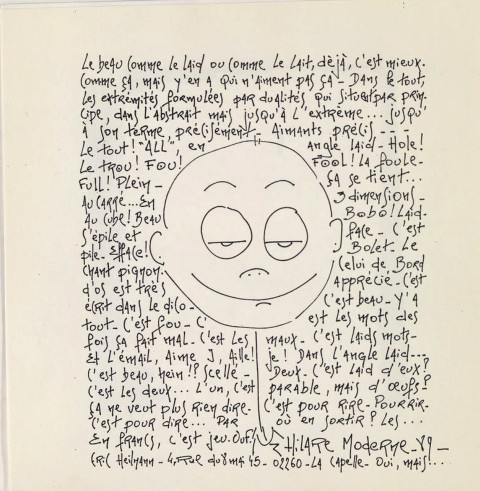 Le beau comme le laid ou comme le lait, dèjà, c'est mieux.
Comme ça, mais y'en a qui n'aiment pas ça - Dans le tout,
les extrémités formulées par dualités qui situent par prin-
cipe, dans l'abstrait mais jusqu'à l'extrème... jusqu'
à son terme, précisément - Aimants précis - - -
Le tout! "ALL", en angle laid - Hole!
Le trou! Fou! FOOL! La foule-
Full! Plein - ça se tient...
Au carré... En 3 dimensions -
Au cube! Beau Bobo! Laid.
S'épile et face - C'est
pile - Efface! Bolet - Le
Chant pignon - celui de Bord
d'os est très apprécié - C'est
écrit dans le dico - c'est beau - Y'a
tout - C'est fou - C' est les mots des
fois ça fait mal - C'est les maux - C'est laids mots -
Et l'émail, Aime J, Aille! je! Dans l'angle laid...
C'est beau, hein!? Scellé - Deux - C'est laid d'eux?
C'est les deux... L'un, c'est parable, mais d'oeufs?
ça ne veut plus rien dire - C'est pour rire - Pourrir -
C'est pour dire... Par où en sortir? Les...
En francs, c'est jeu - Ouf! Hilare Moderne - 89 -
Eric Heilmann - 4, rue du 8 mai 45 - 02260 - La Capelle - Oui, mais!...